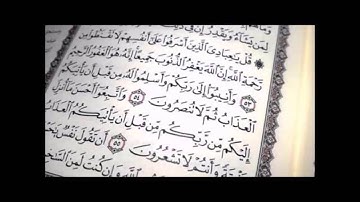 لِمَن يَشَاءُ وَيَقْدِرُ إِنَّ فِي ذَٰلِكَ
قُلْ يَٰعِبَادِيَ الَّذِينَ أَسْرَفُوا عَلَىٰ أَنفُسِهِمْ لَا تَقْنَطُوا مِن
رَّحْمَةِ اللَّهِ إِنَّ اللَّهَ يَغْفِرُ الذُّنُوبَ جَمِيعًا إِنَّهُ هُوَ الْغَفُورُ الرَّحِيمُ
٥٣ وَأَنِيبُوا إِلَىٰ رَبِّكُمْ وَأَسْلِمُوا لَهُ مِن قَبْلِ أَن يَأْتِيَكُمُ
الْعَذَابُ ثُمَّ لَا تُنصَرُونَ ٥٤ وَاتَّبِعُوا أَحْسَنَ مَا أُنزِلَ
إِلَيْكُم مِّن رَّبِّكُم مِّن قَبْلِ أَن يَأْتِيَكُمُ الْعَذَابُ
بَغْتَةً وَأَنتُمْ لَا تَشْعُرُونَ ٥٥ أَن تَقُولَ نَفْسٌ
اللَّهِ وَإِن كُنتُ لَمِنَ